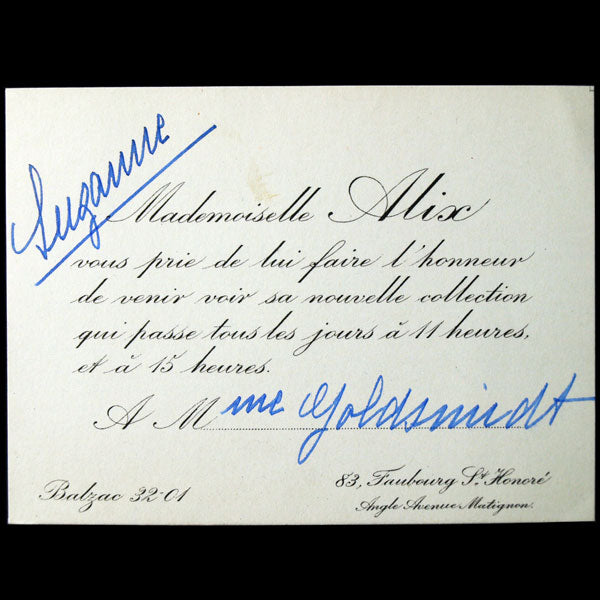 Suzanne
Mademoiselle Alix
vous prie de lui faire l'honneur
de venir voir sa nouvelle collection
qui passe tous les jours à 11 heures,
et à 15 heures.
A Mme Goldsmidt
Balzac 32-01
83, Faubourg St. Honoré
Angle Avenue Matignon.